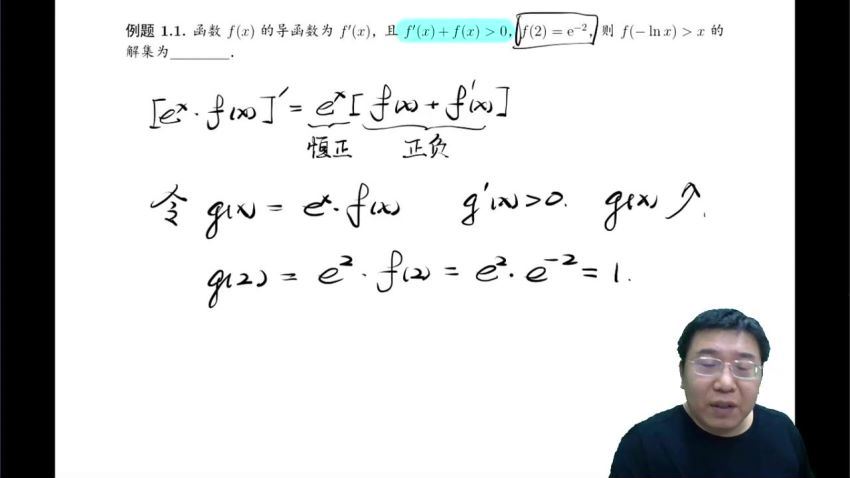 例题 1.1. 函数 f(x) 的导函数为 f′(x)，且 f′(x) + f(x) > 0，f(2) = e⁻²，则 f(− ln x) > x 的
解集为________.
[eˣ · f(x)]′ = eˣ [ f(x) + f′(x) ]
恒正 正负
令 g(x) = eˣ · f(x) g′(x) > 0. g(x) ↗.
g(2) = e² · f(2) = e² · e⁻² = 1.